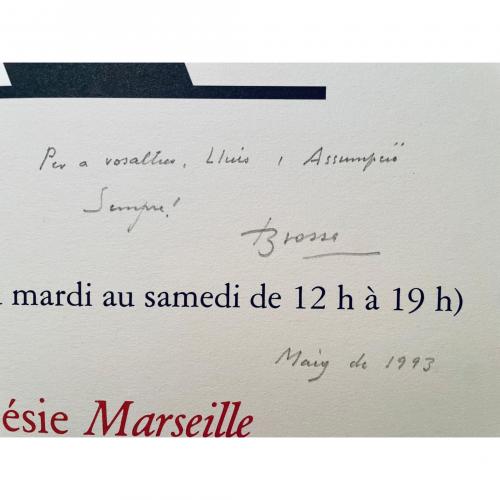 Per a vosaltres, Lluis i Assumpció
Sempre!
Brossa
mardi au samedi de 12 h à 19 h)
Maig de 1993
ésie Marseille